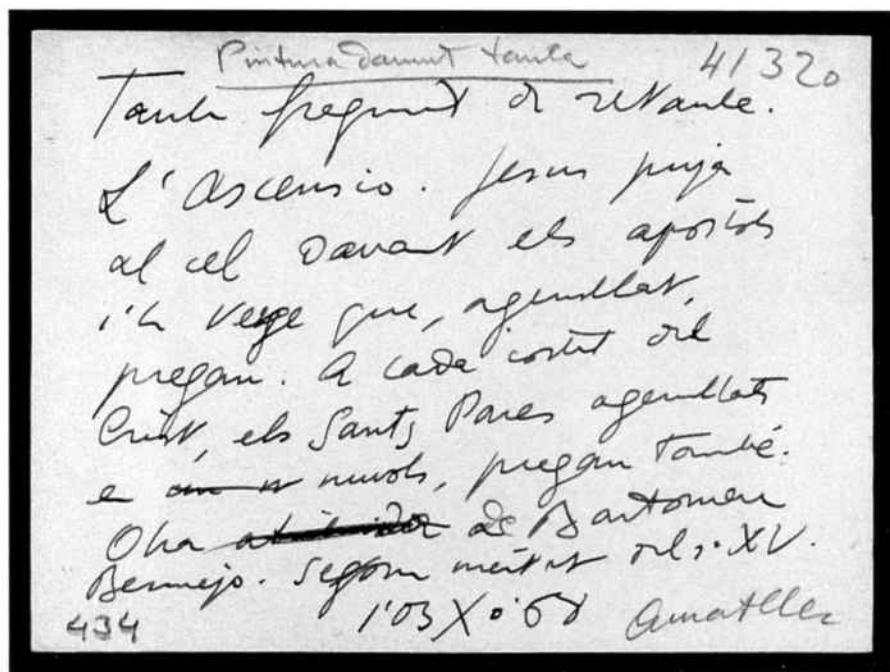 Pintura damunt taula 41320
Taula fragment de retaule.
L'Ascensio. Jesus puja
al cel davant els apostols
i la Verge que, agenollats,
pregan. A cada costat del
Crist, els Sants Pares agenollats
e nuvols, pregan també.
Obra atribuida de Bartomeu
Bermejo. Segona meitat del s. XV.
1'03 X 0'68 Amatller
434